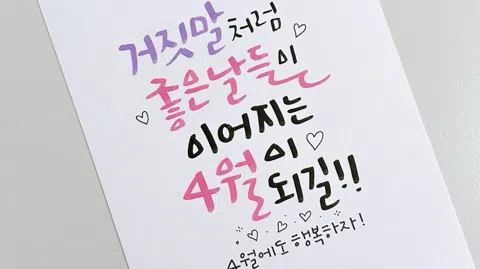 거짓말처럼
좋은날들이
이어지는
4월이
되길!!
4월에도 행복하자!